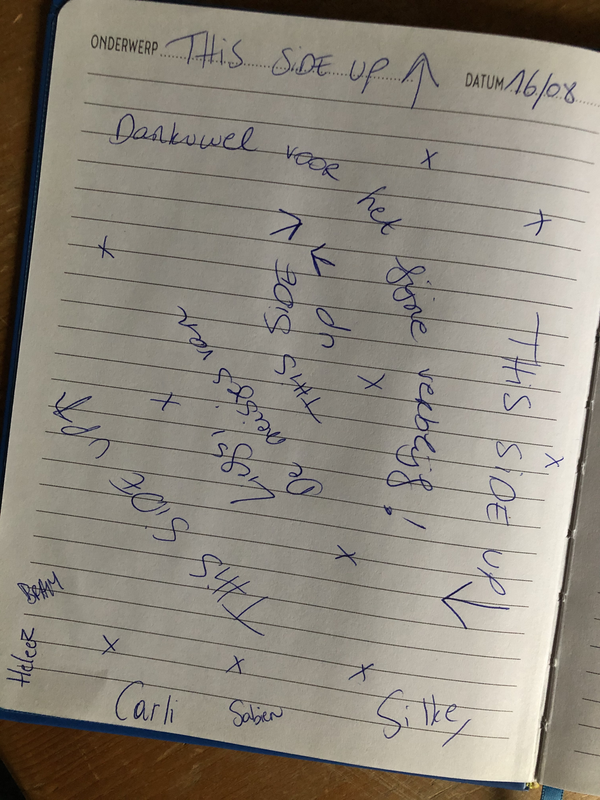 ONDERWERP THIS SIDE UP ↑ DATUM 16/08
Dankuwel voor het fijne verblijf!
THIS SIDE UP
THIS SIDE UP
De van
THIS SIDE UP
BRAM
Carli Sabien Silke,